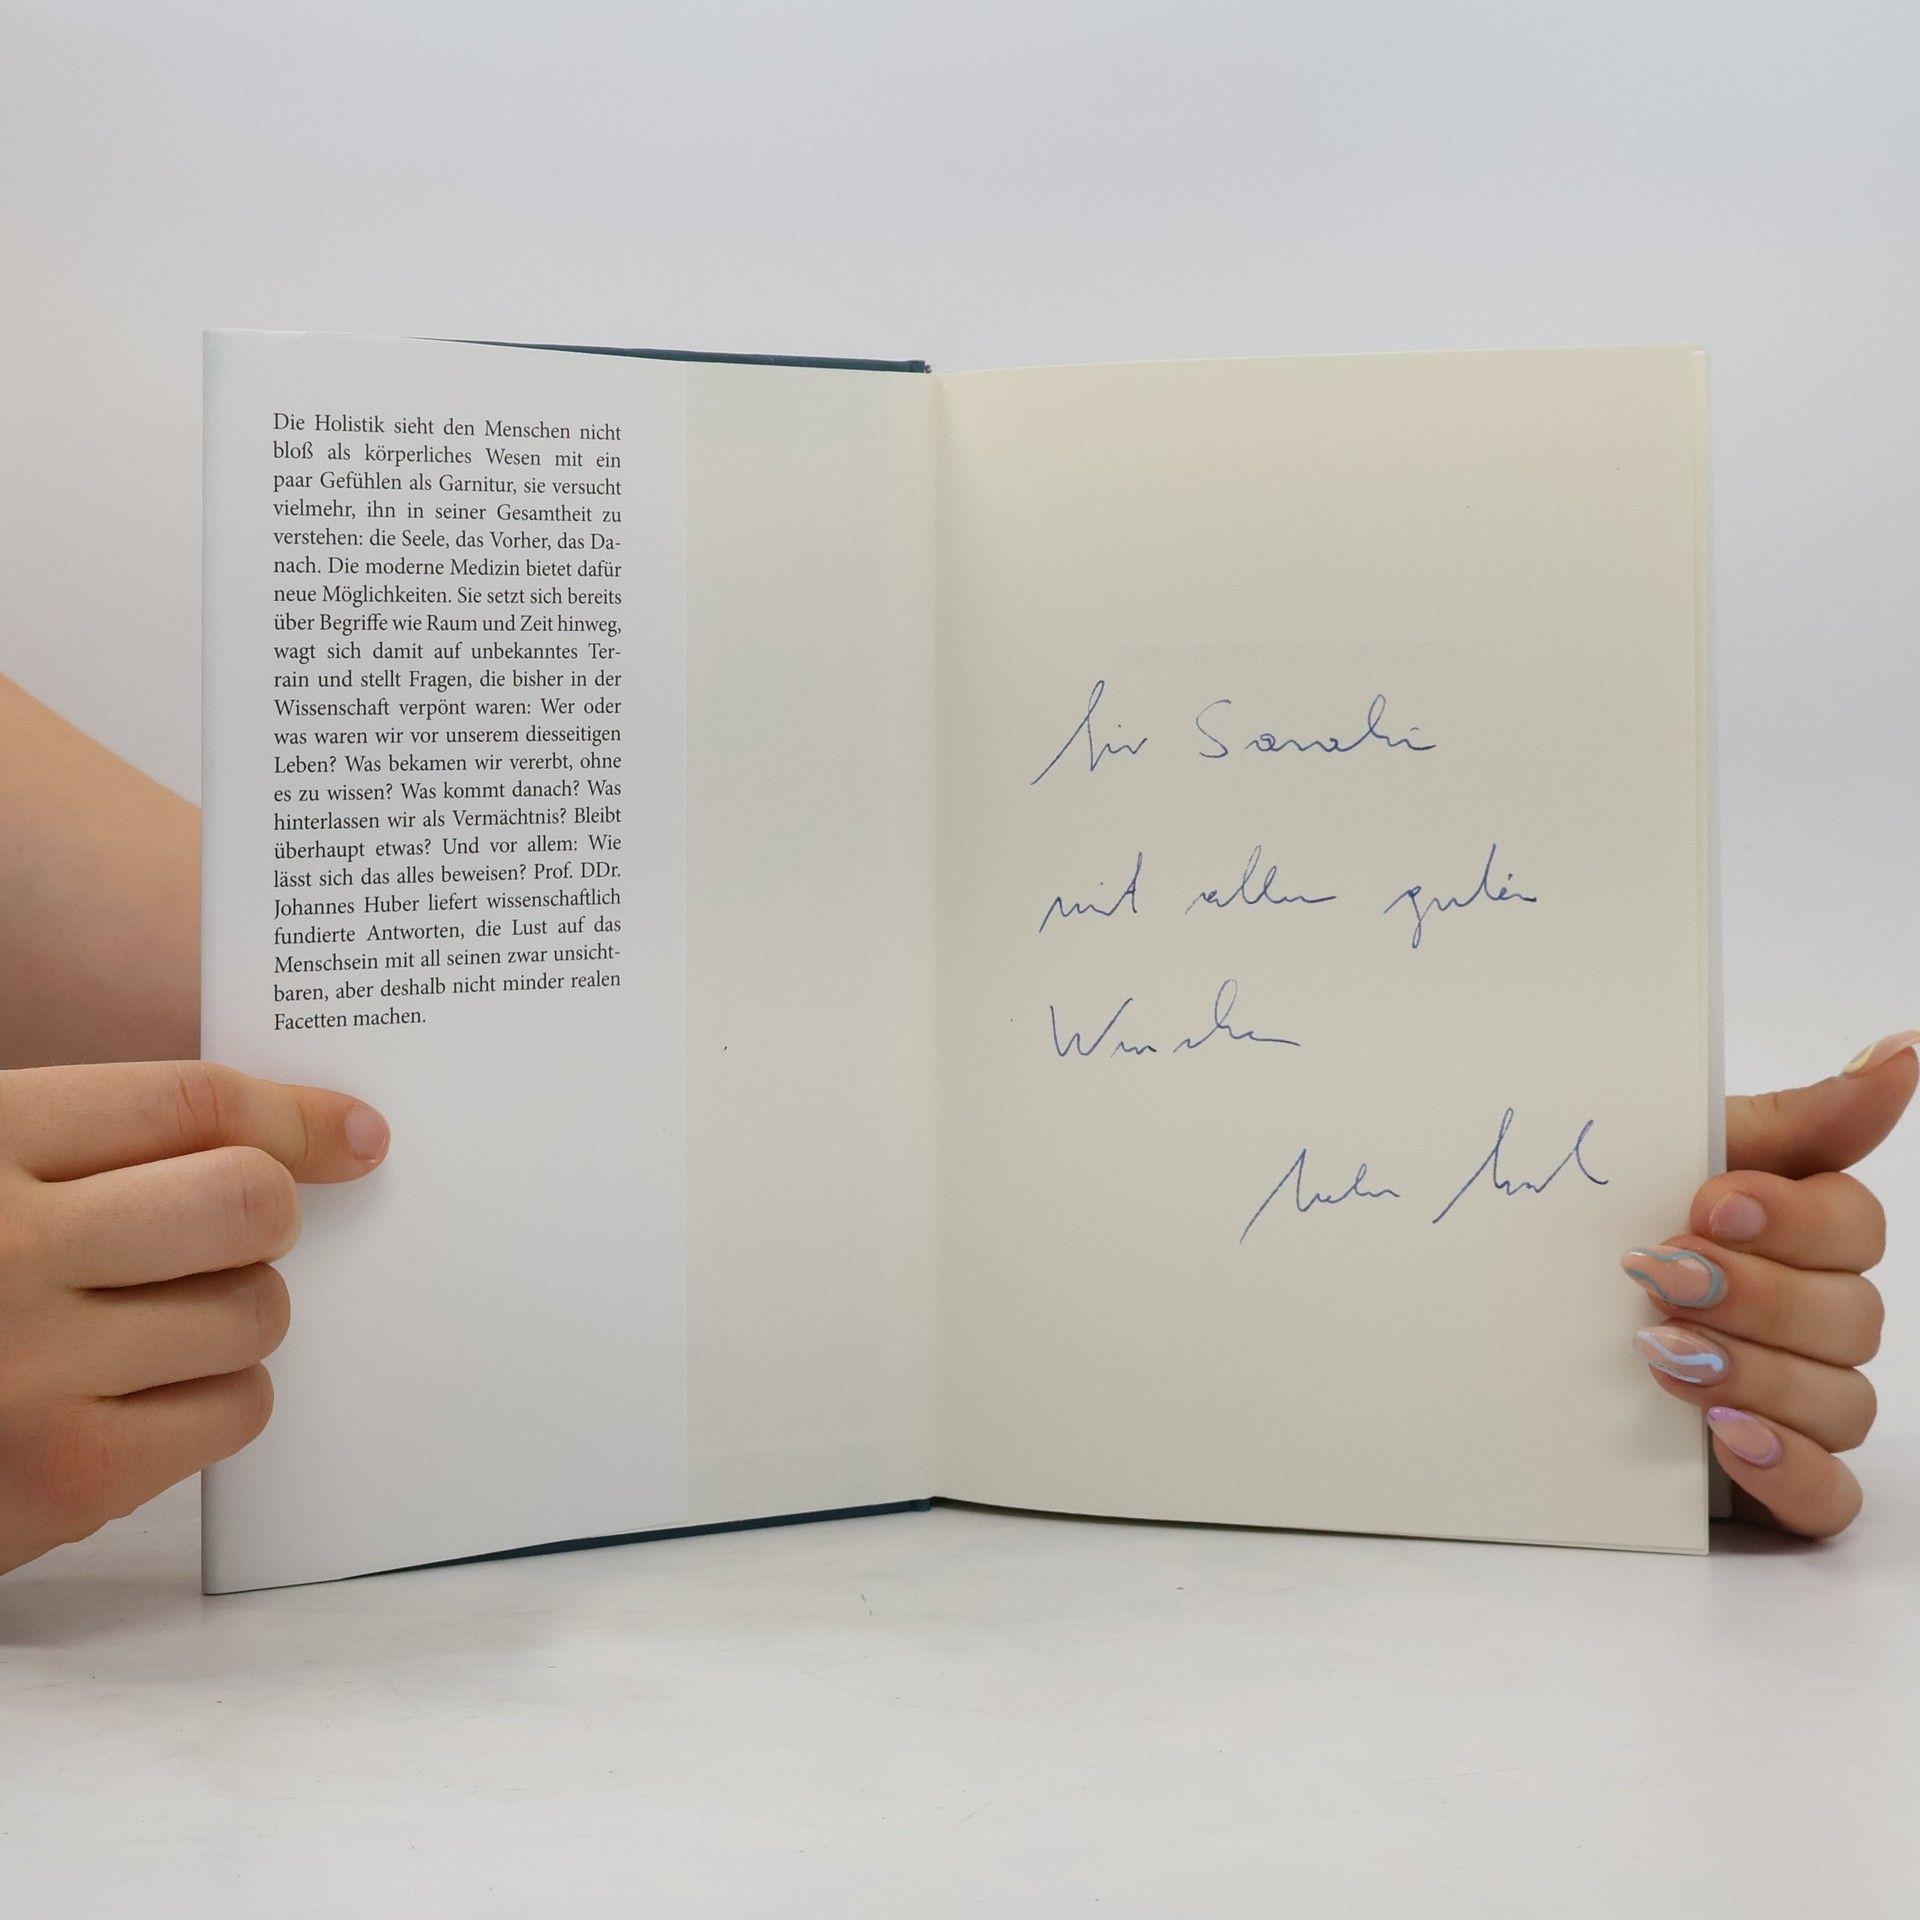 Die Holistik sieht den Menschen nicht
bloß als körperliches Wesen mit ein
paar Gefühlen als Garnitur, sie versucht
vielmehr, ihn in seiner Gesamtheit zu
verstehen: die Seele, das Vorher, das Da-
nach. Die moderne Medizin bietet dafür
neue Möglichkeiten. Sie setzt sich bereits
über Begriffe wie Raum und Zeit hinweg,
wagt sich damit auf unbekanntes Ter-
rain und stellt Fragen, die bisher in der
Wissenschaft verpönt waren: Wer oder
was waren wir vor unserem diesseitigen
Leben? Was bekamen wir vererbt, ohne
es zu wissen? Was kommt danach? Was
hinterlassen wir als Vermächtnis? Bleibt
überhaupt etwas? Und vor allem: Wie
lässt sich das alles beweisen? Prof. DDr.
Johannes Huber liefert wissenschaftlich
fundierte Antworten, die Lust auf das
Menschsein mit all seinen zwar unsicht-
baren, aber deshalb nicht minder realen
Facetten machen.
mit allen guten